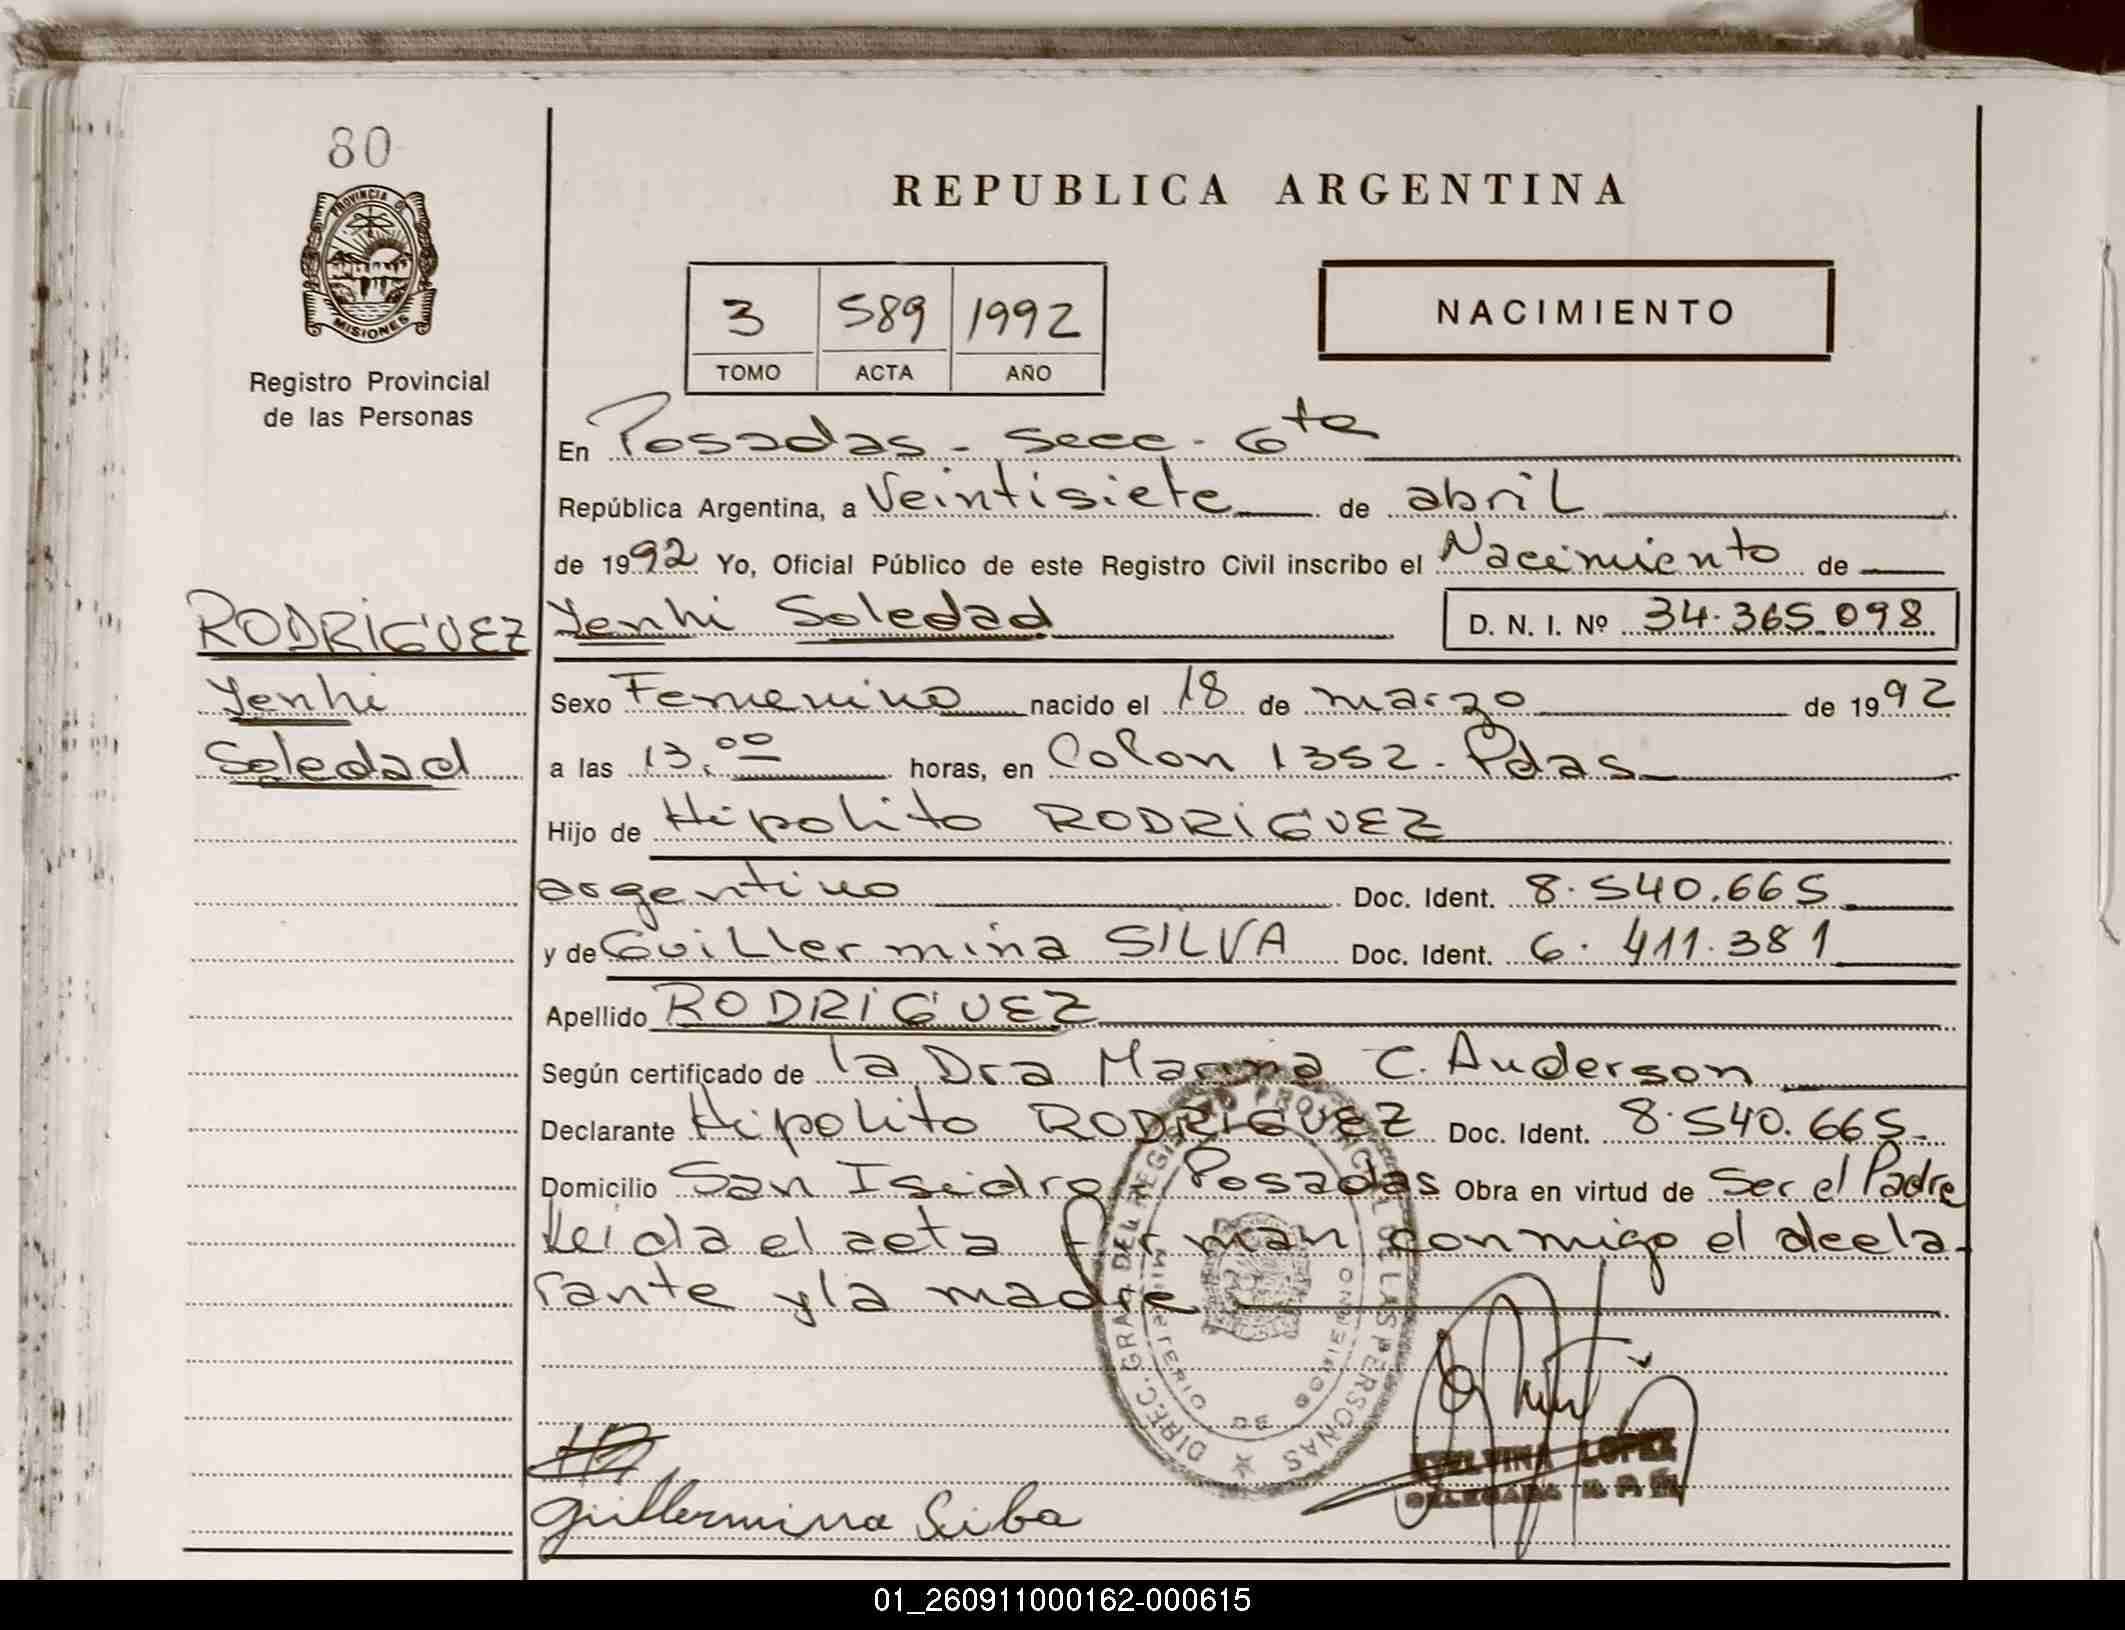 80
REPUBLICA ARGENTINA
PROVINCIA DE
MISIONES
Registro Provincial
de las Personas
3 589 1992
TOMO ACTA AÑO
NACIMIENTO
En Posadas - Secc - 6ta
República Argentina, a Veintisiete de abril
de 1992 Yo, Oficial Público de este Registro Civil inscribo el Nacimiento de
RODRIGUEZ Yenhi Soledad D. N. I. Nº 34.365.098
Yenhi Sexo Femenino nacido el 18 de marzo de 1992
Soledad a las 13.00 horas, en Colon 1352 - Pdas
Hijo de Hipolito RODRIGUEZ
argentino Doc. Ident. 8.540.665
y de Guillermina SILVA Doc. Ident. 6.411.381
Apellido RODRIGUEZ
Según certificado de la Dra Marina C. Anderson
Declarante Hipolito RODRIGUEZ Doc. Ident. 8.540.665
Domicilio San Isidro, Posadas Obra en virtud de Ser el Padre
Leida el acta firman conmigo el decla-
rante y la madre
DIREC. GRAL. DEL REGISTRO PROVINCIAL DE LAS PERSONAS
MINISTERIO DE GOBIERNO
LOPEZ
DELEGADA R. P. P.
Guillermina Silba
01_260911000162-000615